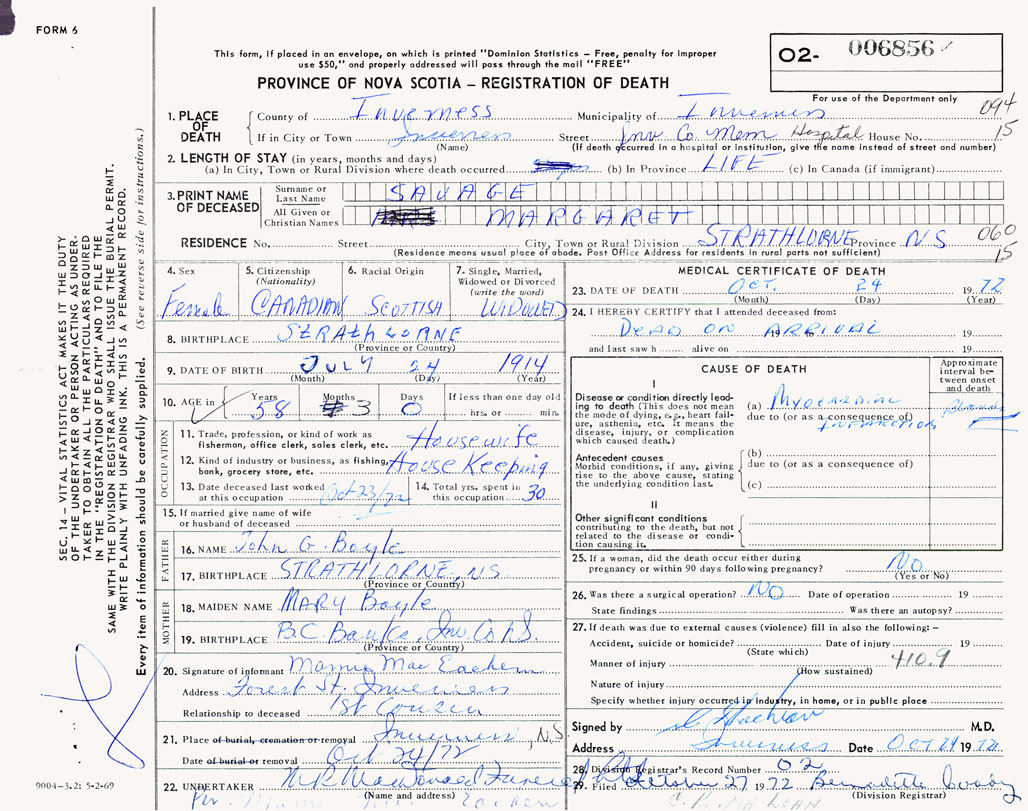 FORM 6
This form, if placed in an envelope, on which is printed "Dominion Statistics – Free, penalty for improper
use $50," and properly addressed will pass through the mail "FREE"
PROVINCE OF NOVA SCOTIA – REGISTRATION OF DEATH
O2- 006856
For use of the Department only
094
15
1. PLACE OF DEATH
County of Inverness Municipality of Inverness
If in City or Town Inverness Street Inv Co. Mem Hospital House No.
(Name) (If death occurred in a hospital or institution, give the name instead of street and number)
2. LENGTH OF STAY (in years, months and days)
(a) In City, Town or Rural Division where death occurred (b) In Province LIFE (c) In Canada (if immigrant)
3. PRINT NAME OF DECEASED
Surname or Last Name SAVAGE
All Given or Christian Names MARGARET
RESIDENCE No. Street City, Town or Rural Division STRATHLORNE Province NS
060
15
(Residence means usual place of abode. Post Office Address for residents in rural parts not sufficient)
4. Sex Female
5. Citizenship (Nationality) CANADIAN
6. Racial Origin SCOTTISH
7. Single, Married, Widowed or Divorced (write the word) WIDOWED
8. BIRTHPLACE STRATHLORNE
(Province or Country)
9. DATE OF BIRTH JULY 24 1914
(Month) (Day) (Year)
10. AGE in Years 58 Months 3 Days 0 If less than one day old
hrs. or min.
OCCUPATION
11. Trade, profession, or kind of work as
fishermen, office clerk, sales clerk, etc. Housewife
12. Kind of industry or business, as fishing,
bank, grocery store, etc. House Keeping
13. Date deceased last worked
at this occupation Oct 23/72
14. Total yrs. spent in
this occupation 30
15. If married give name of wife
or husband of deceased
FATHER
16. NAME John G. Boyle
17. BIRTHPLACE STRATHLORNE, NS
(Province or Country)
MOTHER
18. MAIDEN NAME MARY Boyle
19. BIRTHPLACE B.C. Banks, Inv. Co. N.S.
(Province or Country)
20. Signature of informant Mac Eachern
Address Forest St. Inverness
Relationship to deceased 1st Cousin
21. Place of burial, cremation or removal Inverness, N.S
Date of burial or removal Oct 24/72
22. UNDERTAKER MacDonald Funeral
(Name and address)
MEDICAL CERTIFICATE OF DEATH
23. DATE OF DEATH OCT. 24 1972
(Month) (Day) (Year)
24. I HEREBY CERTIFY that I attended deceased from:
DEAD ON ARRIVAL 19
and last saw h alive on 19
CAUSE OF DEATH
Approximate interval between onset and death
I
Disease or condition directly leading to death (This does not mean the mode of dying, e.g., heart failure, asthenia, etc. It means the disease, injury, or complication which caused death.)
(a) MYOCARDIAL
due to (or as a consequence of)
INFARCTION
Antecedent causes
Morbid conditions, if any, giving rise to the above cause, stating the underlying condition last.
(b)
due to (or as a consequence of)
(c)
II
Other significant conditions
contributing to the death, but not related to the disease or condition causing it.
25. If a woman, did the death occur either during
pregnancy or within 90 days following pregnancy? No
(Yes or No)
26. Was there a surgical operation? NO Date of operation 19
State findings Was there an autopsy?
27. If death was due to external causes (violence) fill in also the following: –
Accident, suicide or homicide? Date of injury 19
(State which)
410.9
Manner of injury
(How sustained)
Nature of injury
Specify whether injury occurred in industry, in home, or in public place
Signed by M.D.
Address Inverness Date OCT 24 1972
28. Division Registrar's Record Number 02
29. Filed October 27 1972 Bernadette
(Division Registrar)
C. R. MACLEAN
SEC. 14 – VITAL STATISTICS ACT MAKES IT THE DUTY
OF THE UNDERTAKER OR PERSON ACTING AS UNDER-
TAKER TO OBTAIN ALL THE PARTICULARS REQUIRED
IN THE "REGISTRATION OF DEATH" AND TO FILE THE
SAME WITH THE DIVISION REGISTRAR WHO SHALL ISSUE THE BURIAL PERMIT.
WRITE PLAINLY WITH UNFADING INK. THIS IS A PERMANENT RECORD.
Every item of information should be carefully supplied. (See reverse side for instructions.)
9004-3.2: 5-2-69